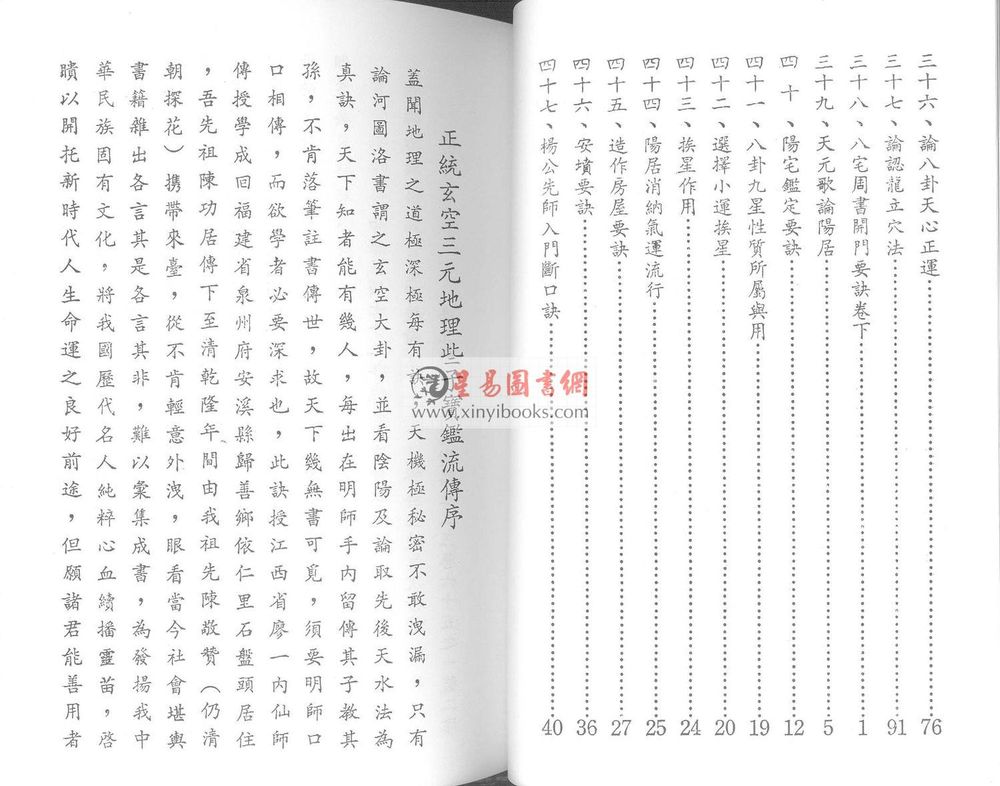 三十六、論八卦天心正運……76
三十七、論認龍立穴法……91
三十八、八宅周書開門要訣卷下……1
三十九、天元歌論陽居……5
四十、陽宅鑑定要訣……12
四十一、八卦九星性質所屬與用……19
四十二、選擇小運挨星……20
四十三、挨星作用……24
四十四、陽居消納氣運流行……25
四十五、造作房屋要訣……27
四十六、安墳要訣……36
四十七、楊公先師入門斷口訣……40
正統玄空三元地理些子寶鑑流傳序
蓋聞地理之道極深極每有訣，天機極秘密不敢洩漏，只有
論河圖洛書謂之玄空大卦，並看陰陽及論取先後天水法為
真訣，天下知者能有幾人，每出在明師手內留傳其子教其
孫，不肯落筆註書傳世，故天下幾無書可覓，須要明師口
口相傳，而欲學者必要深求也，此訣授江西省廖一內仙師
傳授學成回福建省泉州府安溪縣歸善鄉依仁里石盤頭居住
，吾先祖陳功居傳下至清乾隆年間由我祖先陳敬贊（仍清
朝探花）携帶來臺，從不肯輕意外洩，眼看當今社會堪輿
書籍雜出各言其是各言其非，難以彙集成書，為發揚我中
華民族固有文化，將我國歷代名人純粹心血續播靈苗，啓
瞶以開托新時代人生命運之良好前途，但願諸君能善用者
星易圖書網
www.xinyibooks.com